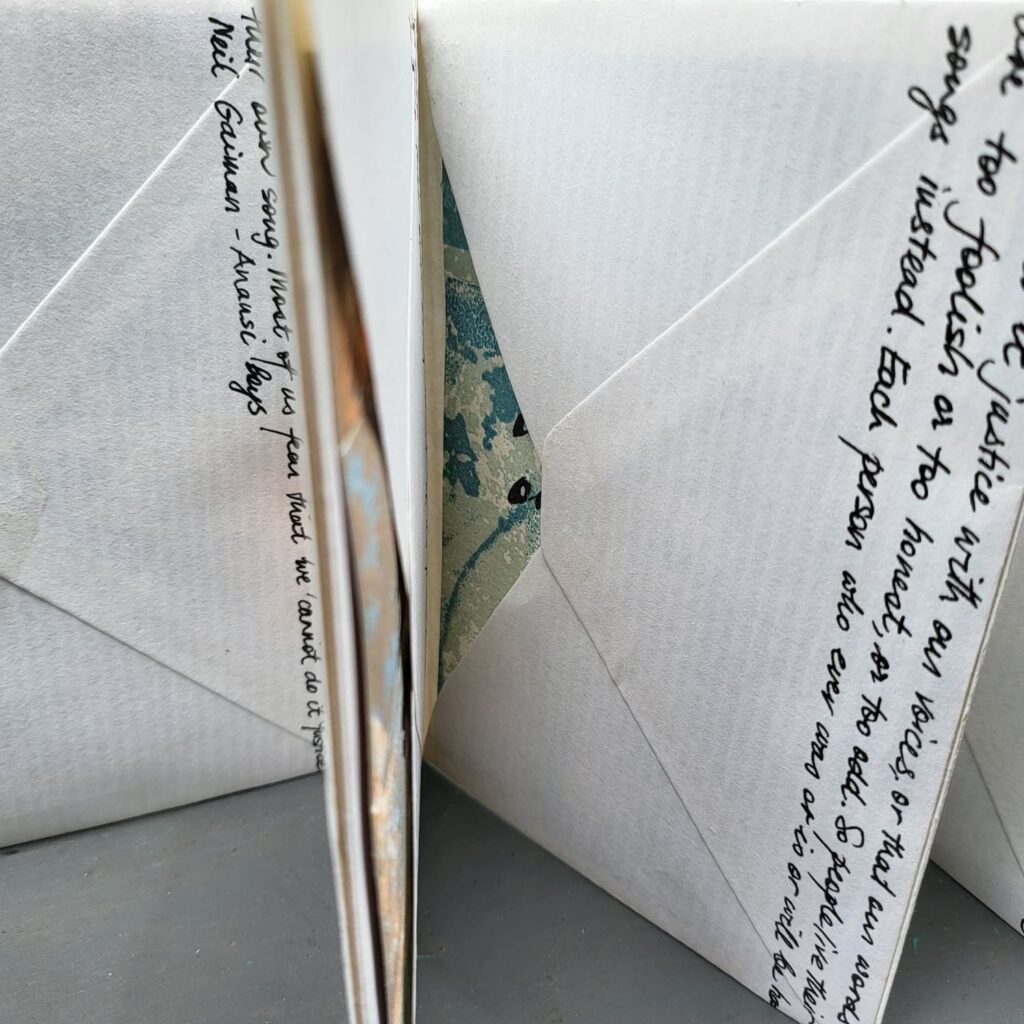 their own song. Most of us fear that we cannot do it justice
Neil Gaiman - Anansi Boys
it justice with our voices, or that our words
are too foolish or too honest, or too odd. So people live their
songs instead. Each person who ever was or is or will be has